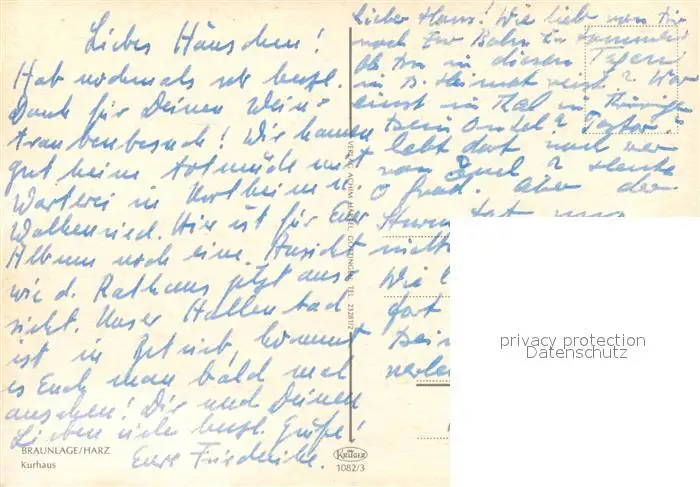 Liebes Häuschen!
Hab nochmals sehr herzl.
Dank für Deinen Wein-
traubenbesuch! Wir kamen
gut heim totmüde mit
Warterei in Northeim u
Walkenried. Hier ist für Euer
Album noch eine Ansicht
wie d. Rathaus jetzt aus
sieht. Unser Hallenbad
ist in Betrieb, kommt
es Euch man bald mal
ansehen! Dir und Deinen
Lieben viele herzl. Grüße!
Eure Friederike.
BRAUNLAGE/HARZ
Kurhaus
VERLAG ACHIM GÖTTINGEN, TEL.
KRÜGER
1082/3
Lieber Hans! Wie lieb von Dir
noch zur Bahn zu kommen!
Ob Du in diesen Tagen
in D. Heimat reist? Wo
einst in Thal in Thüringen
Dein Onkel? Pastor?
lebt dort noch wer
von Euch? Heute
0 Grad. Aber der
Sturm
nicht
Wie
fort
Dein
privacy protection
Datenschutz